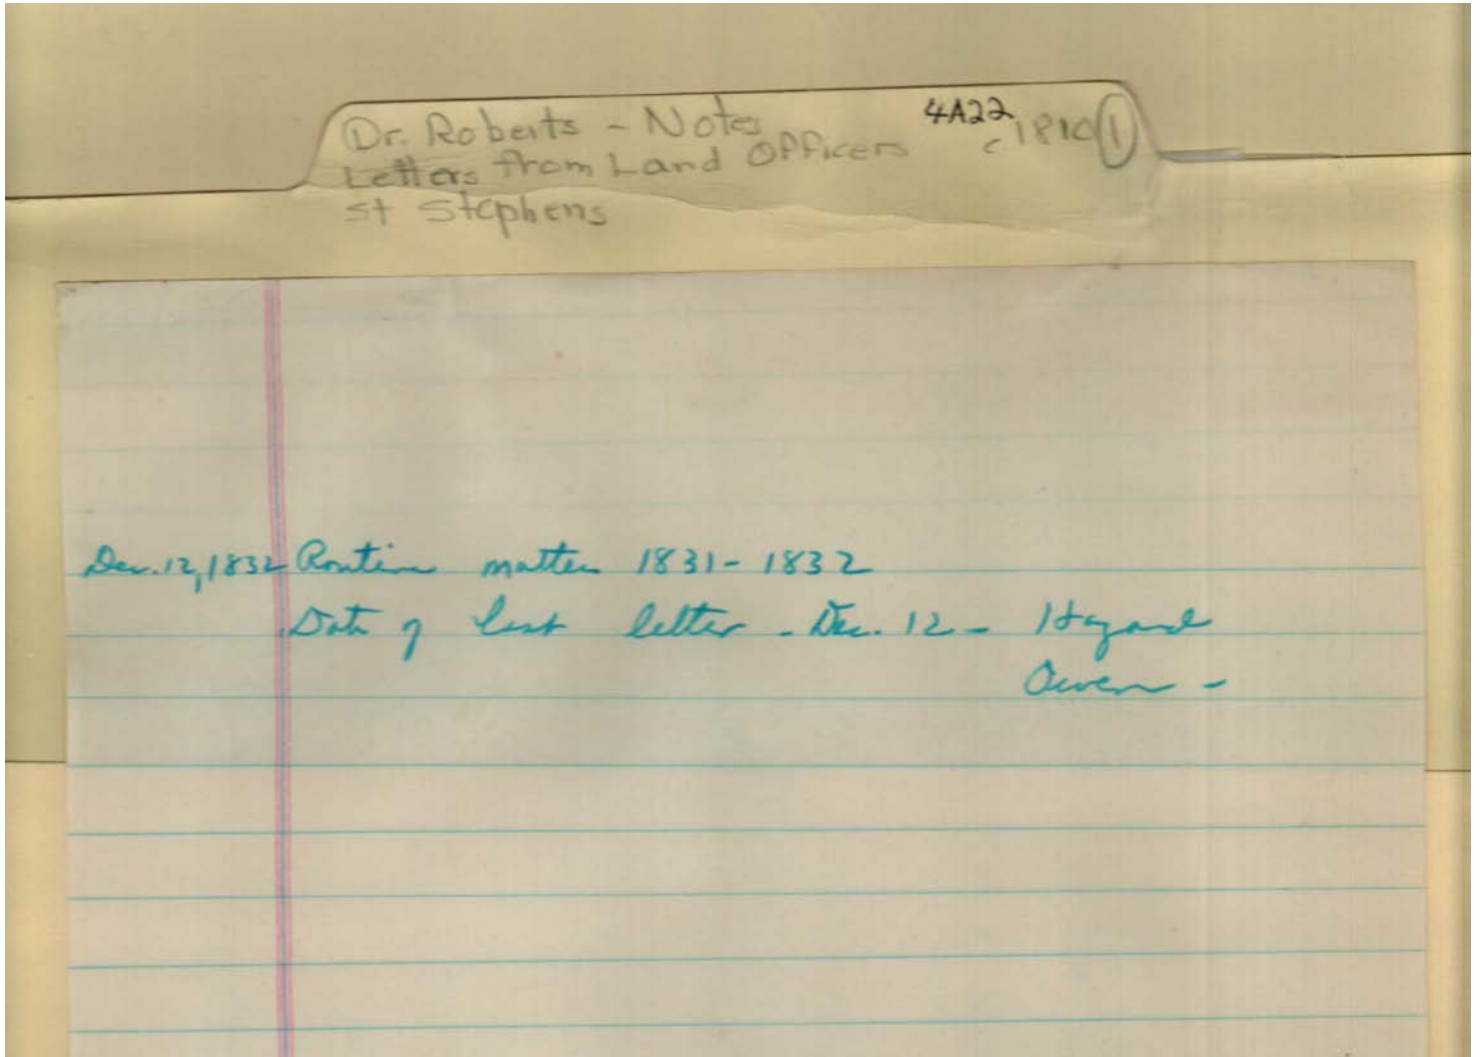 Dr. Roberts - Notes 4A22 c 1810 1
Letters from Land Officers
St Stephens
Dec. 12, 1832 Routine matter 1831-1832
Date of last letter - Dec. 12 -
Owen -